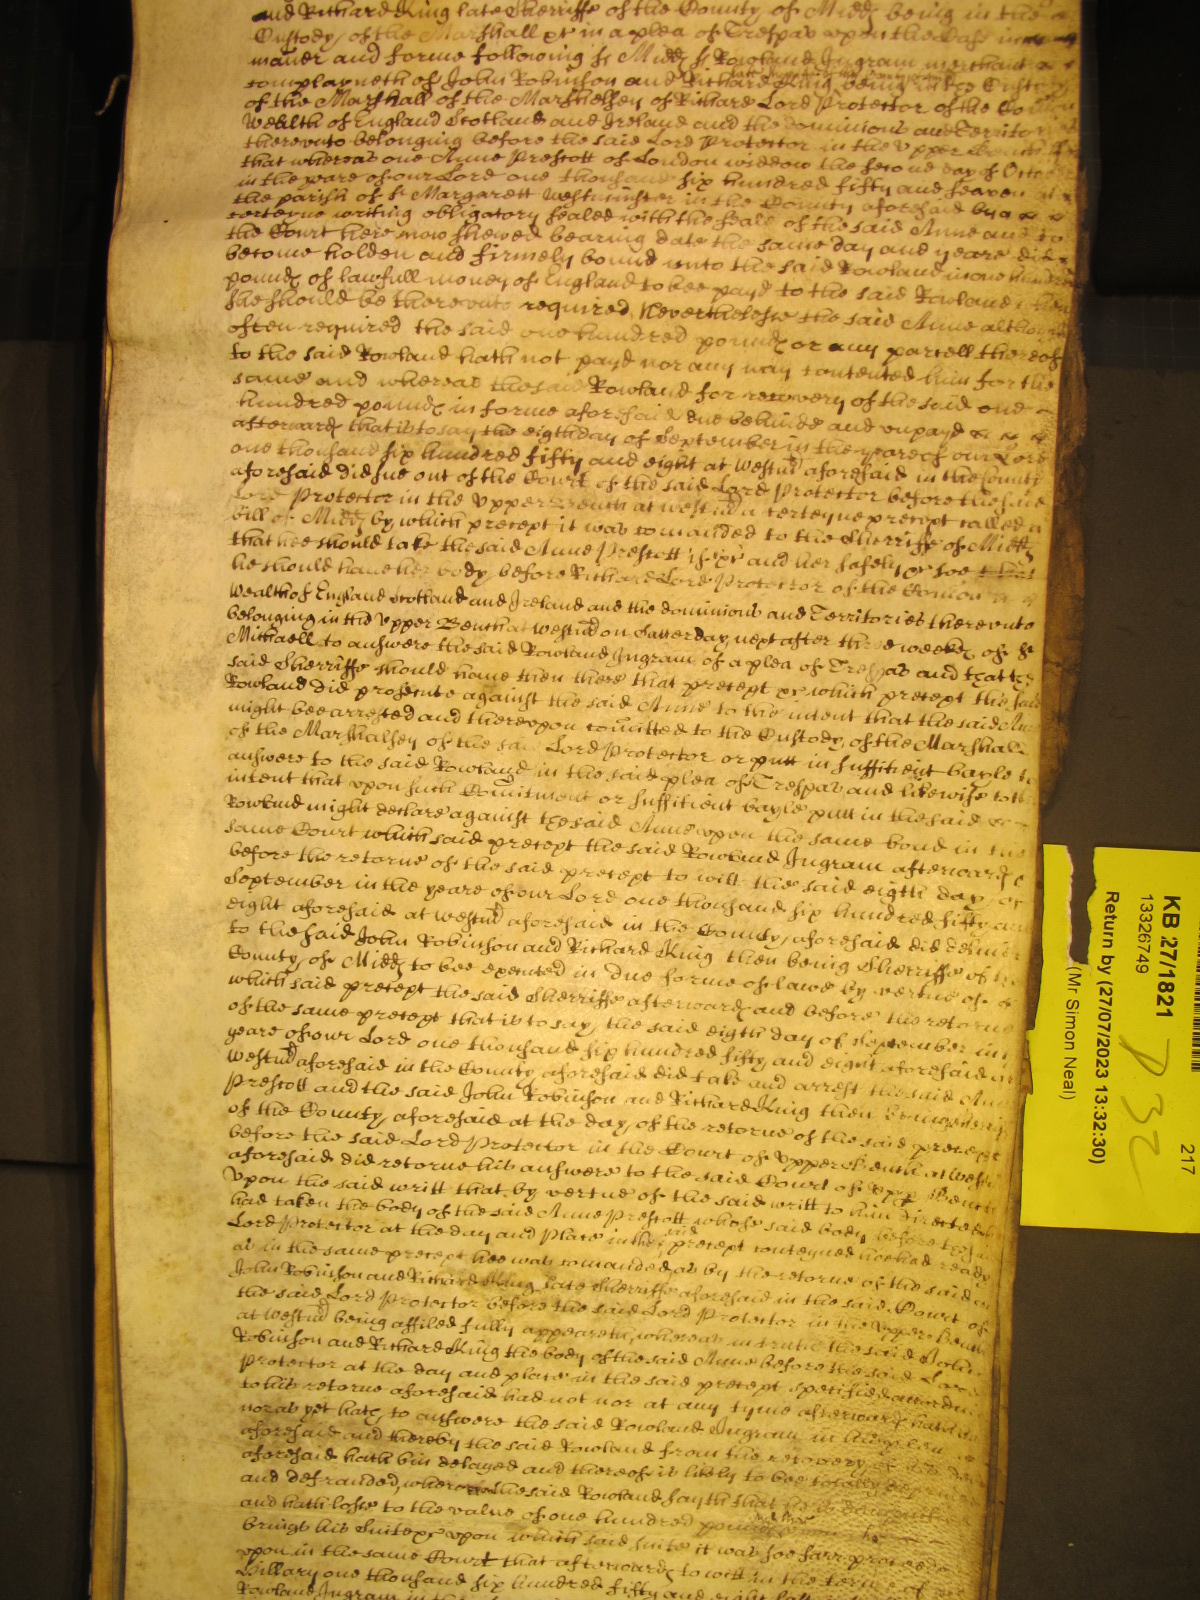 and Richard King late Sherriffe of the County of Midd being in the
Custody of the Marshall &c in a plea of Trespas upon the Case in
maner and forme following ss Midd ss Rowland Ingram merchant
complayneth of John Robinson and Richard King being in the Custody
of the Marshall of the Marshelsey of Richard Lord Protector of the Com̃on
Wealth of England Scotland and Ireland and the dominions and Territories
therevnto belonging before the said Lord Protector in the Vpper Bench
that whereas one Anne Prescott of London widdow the second day of October
in the yeare of our Lord one thousand six hundred fifty and seaven at
the parish of St Margarett Westminster in the County aforesaid by a
certeyne writing obligatory sealed with the seale of the said Anne and to
the Court here now shewed bearing date the same day and yeare did
become holden and firmely bound vnto the said Rowland in one hundred
pound of lawfull money of England to bee payd to the said Rowland when
she should be therevnto required Neverthelesse the said Anne although
often required the said one hundred pound or any parcell thereof
to the said Rowland hath not payd nor any way contented him for the
same and whereas the said Rowland for recovery of the said one
hundred pound in forme aforesaid due behinde and vnpayd
afterward that is to say the eigth day of September in the yeare of our Lord
one thousand six hundred fifty and eight at Westm̃ aforesaid in the County
aforesaid did sue out of the Court of the said Lord Protector before the said
Lord Protector in the Vpper Bench at Westm̃ a certeyne precept called a
Bill of Midd by which precept it was com̃anded to the Sherriffe of Midd
that hee should take the said Anne Prescott if &c and her safely &c soe that
he should have her body before Richard Lord Protector of the Com̃on
Wealth of England Scotland and Ireland and the dominions and Territories therevnto
belonging in the Vpper Bench at Westm̃ on Satterday next after three weekes of St
Michaell to answere the said Rowland Ingram of a plea of Trespas and that the
said Sherriffe should have then there that precept &c which precept the said
Rowland did prosecute against the said Anne to the intent that the said Anne
might bee arrested and therevpon com̃itted to the Custody of the Marshall
of the Marshalsey of the said Lord Protector or putt in sufficient bayle to
answere to the said Rowland in the said plea of Trespas and likewise to the
intent that vpon such Com̃itment or sufficient bayle putt in the said
Rowland might declare against the said Anne vpon the same bond in the
same Court which said precept the said Rowland Ingram afterward &
before the retorne of the said precept to witt the said eigth day of
September in the yeare of our Lord one thousand six hundred fifty and
eight aforesaid at Westm̃ aforesaid in the County aforesaid did deliver
to the said John Robinson and Richard King then being Sherriffe of the
County of Midd to bee executed in due forme of lawe by vertue of
which said precept the said Sherriffe afterward and before the retorne
of the same precept that is to say the said eigth day of September in the
yeare of our Lord one thousand six hundred fifty and eight aforesaid at
Westm̃ aforesaid in the County aforesaid did take and arrest the said Anne
Prescott and the said John Robinson and Richard King then being Sherriffe
of the County aforesaid at the day of the retorne of the said precept
before the said Lord Protector in the Court of Vpper Bench at Westm̃
aforesaid did retorne his answere to the said Court of Vpp Bench
Vpon the said writt that by vertue of the said writt to him directed hee
had taken the body of the said Anne Prescott whose said body before the said
Lord Protector at the day and place in the said precept conteyned hee had ready
as in the same precept hee was com̃anded as by the retorne of the said
John Robinson and Richard King late Sherriffe aforesaid in the said Court of
the said Lord Protector before the said Lord Protector in the Vpper Bench
at Westm̃ being affiled fully appeareth whereas in truth the said John
Robinson and Richard King the body of the said Anne before the said Lord
Protector at the day and place in the said precept specified according
to his retorne aforesaid had not nor at any tyme afterward hath had
nor as yet hath to answere the said Rowland Ingram in the plea
aforesaid and thereby the said Rowland from the recovery of his debt
aforesaid hath bin delayed and thereof is likely to bee totally deprived
and defrauded wherevpon the said Rowland sayth that he is dampnified
and hath losse to the value of one hundred pound
brings his suite &c vpon which said suite it was soe farr proceeded
vpon in the same Court that afterward to witt in the terme of
Hillary one thousand six hundred fifty and eight
Rowland Ingram in the
KB 27/1821
13326749
217
D 32
Return by (27/07/2023 13:32:30)
(Mr Simon Neal)